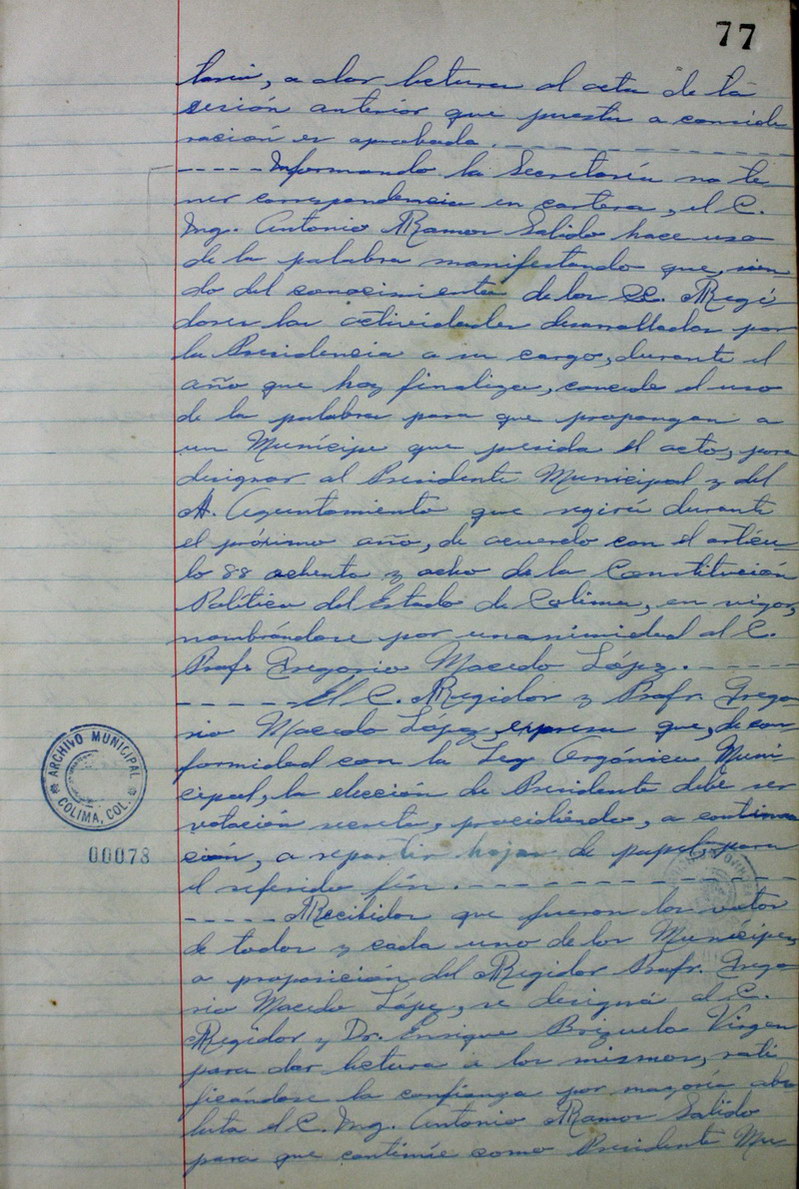 77
taria, a dar lectura al acta de la
sesión anterior que puesta a conside
ración es aprobada. - - - - - - - - - -
- - - - - Informando la Secretaría no te
ner correspondencia en cartera, el C.
Ing. Antonio Ramos Salido hace uso
de la palabra manifestando que, sien
do del conocimiento de los CC. Regi
dores las actividades desarrolladas por
la Presidencia a su cargo, durante el
año que hoy finaliza, concede el uso
de la palabra para que propongan a
un Munícipe que presida el acto, para
designar al Presidente Municipal y del
H. Ayuntamiento que regirá durante
el próximo año, de acuerdo con el artícu-
lo 88 ochenta y ocho de la Constitución
Política del Estado de Colima, en vigor,
nombrándose por unanimidad al C.
Profr. Gregorio Macedo López. - - - - -
- - - - - El C. Regidor y Profr. Grego-
rio Macedo López expresa que, de con-
formidad con la Ley Orgánica Muni-
cipal, la elección de Presidente debe ser
votación secreta, procediendo, a continua
ción, a repartir hojas de papel, para
el referido fin. - - - - - - - - - - - -
- - - - - Recibidos que fueron los votos
de todos y cada uno de los Munícipes,
a proposición del Regidor Profr. Grego-
rio Macedo López, se designa al C.
Regidor y Dr. Enrique Brizuela Virgen
para dar lectura a los mismos, rati-
ficándose la confianza por mayoría abso
luta al C. Ing. Antonio Ramos Salido
para que continúe como Presidente Mu-
ARCHIVO MUNICIPAL
COLIMA, COL.
00078